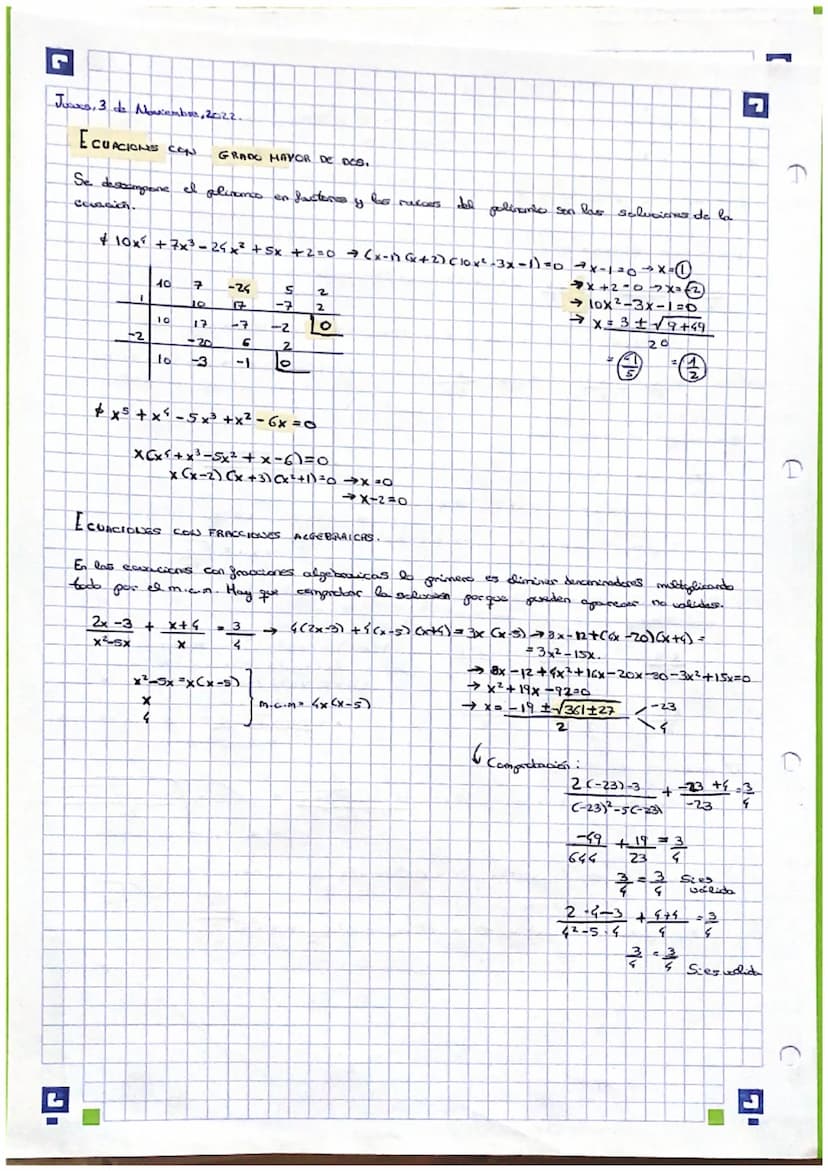 Jueves, 3 de Noviembre, 2022.
ECUACIONES CON GRADO MAYOR DE DOS.
Se descompone el polinomio en factores y las raíces del polinomio son las soluciones de la
ecuación.
10x⁴ + 7x³ - 24x² + 5x + 2 = 0 → (x-1) (x+2) (10x² - 3x - 1) = 0 → x-1=0 → x=1
→ x+2=0 → x=-2
→ 10x²-3x-1=0
→ x = 3 ± √9+49 / 20
= -1/5 = 1/2
10 7 -24 5 2
1 10 17 -7 2
10 17 -7 -2 0
-2 -20 6 2
10 -3 -1 0
x⁵ + x⁴ - 5x³ + x² - 6x = 0
x(x⁴ + x³ - 5x² + x - 6) = 0
x(x-2) (x+3) (x²+1) = 0 → x=0
→ x-2=0
ECUACIONES CON FRACCIONES ALGEBRAICAS.
En las ecuaciones con fracciones algebraicas lo primero es eliminar denominadores multiplicando
todo por el m.c.m. Hay que comprobar la solución porque pueden aparecer no validas.
2x-3 / x²-5x + x+4 / x = 3 / 4 → 4(2x-3) + 4(x-5) (x+4) = 3x (x-5) → 8x-12+(4x-20)(x+4) =
= 3x²-15x.
x²-5x = x(x-5)
x
4
m.c.m = 4x(x-5)
→ 8x-12+4x²+16x-20x-80-3x²+15x=0
→ x²+19x-92=0
→ x = -19 ± √361±27 / 2
-23
4
Comprobación:
2(-23)-3 / (-23)²-5(-23) + -23+4 / -23 = 3/4
-49/644 + 19/23 = 3/4
3/4 = 3/4 Si es válida
2·4-3 / 4²-5·4 + 4+4 / 4 = 3/4
3/4 = 3/4 Si es valida